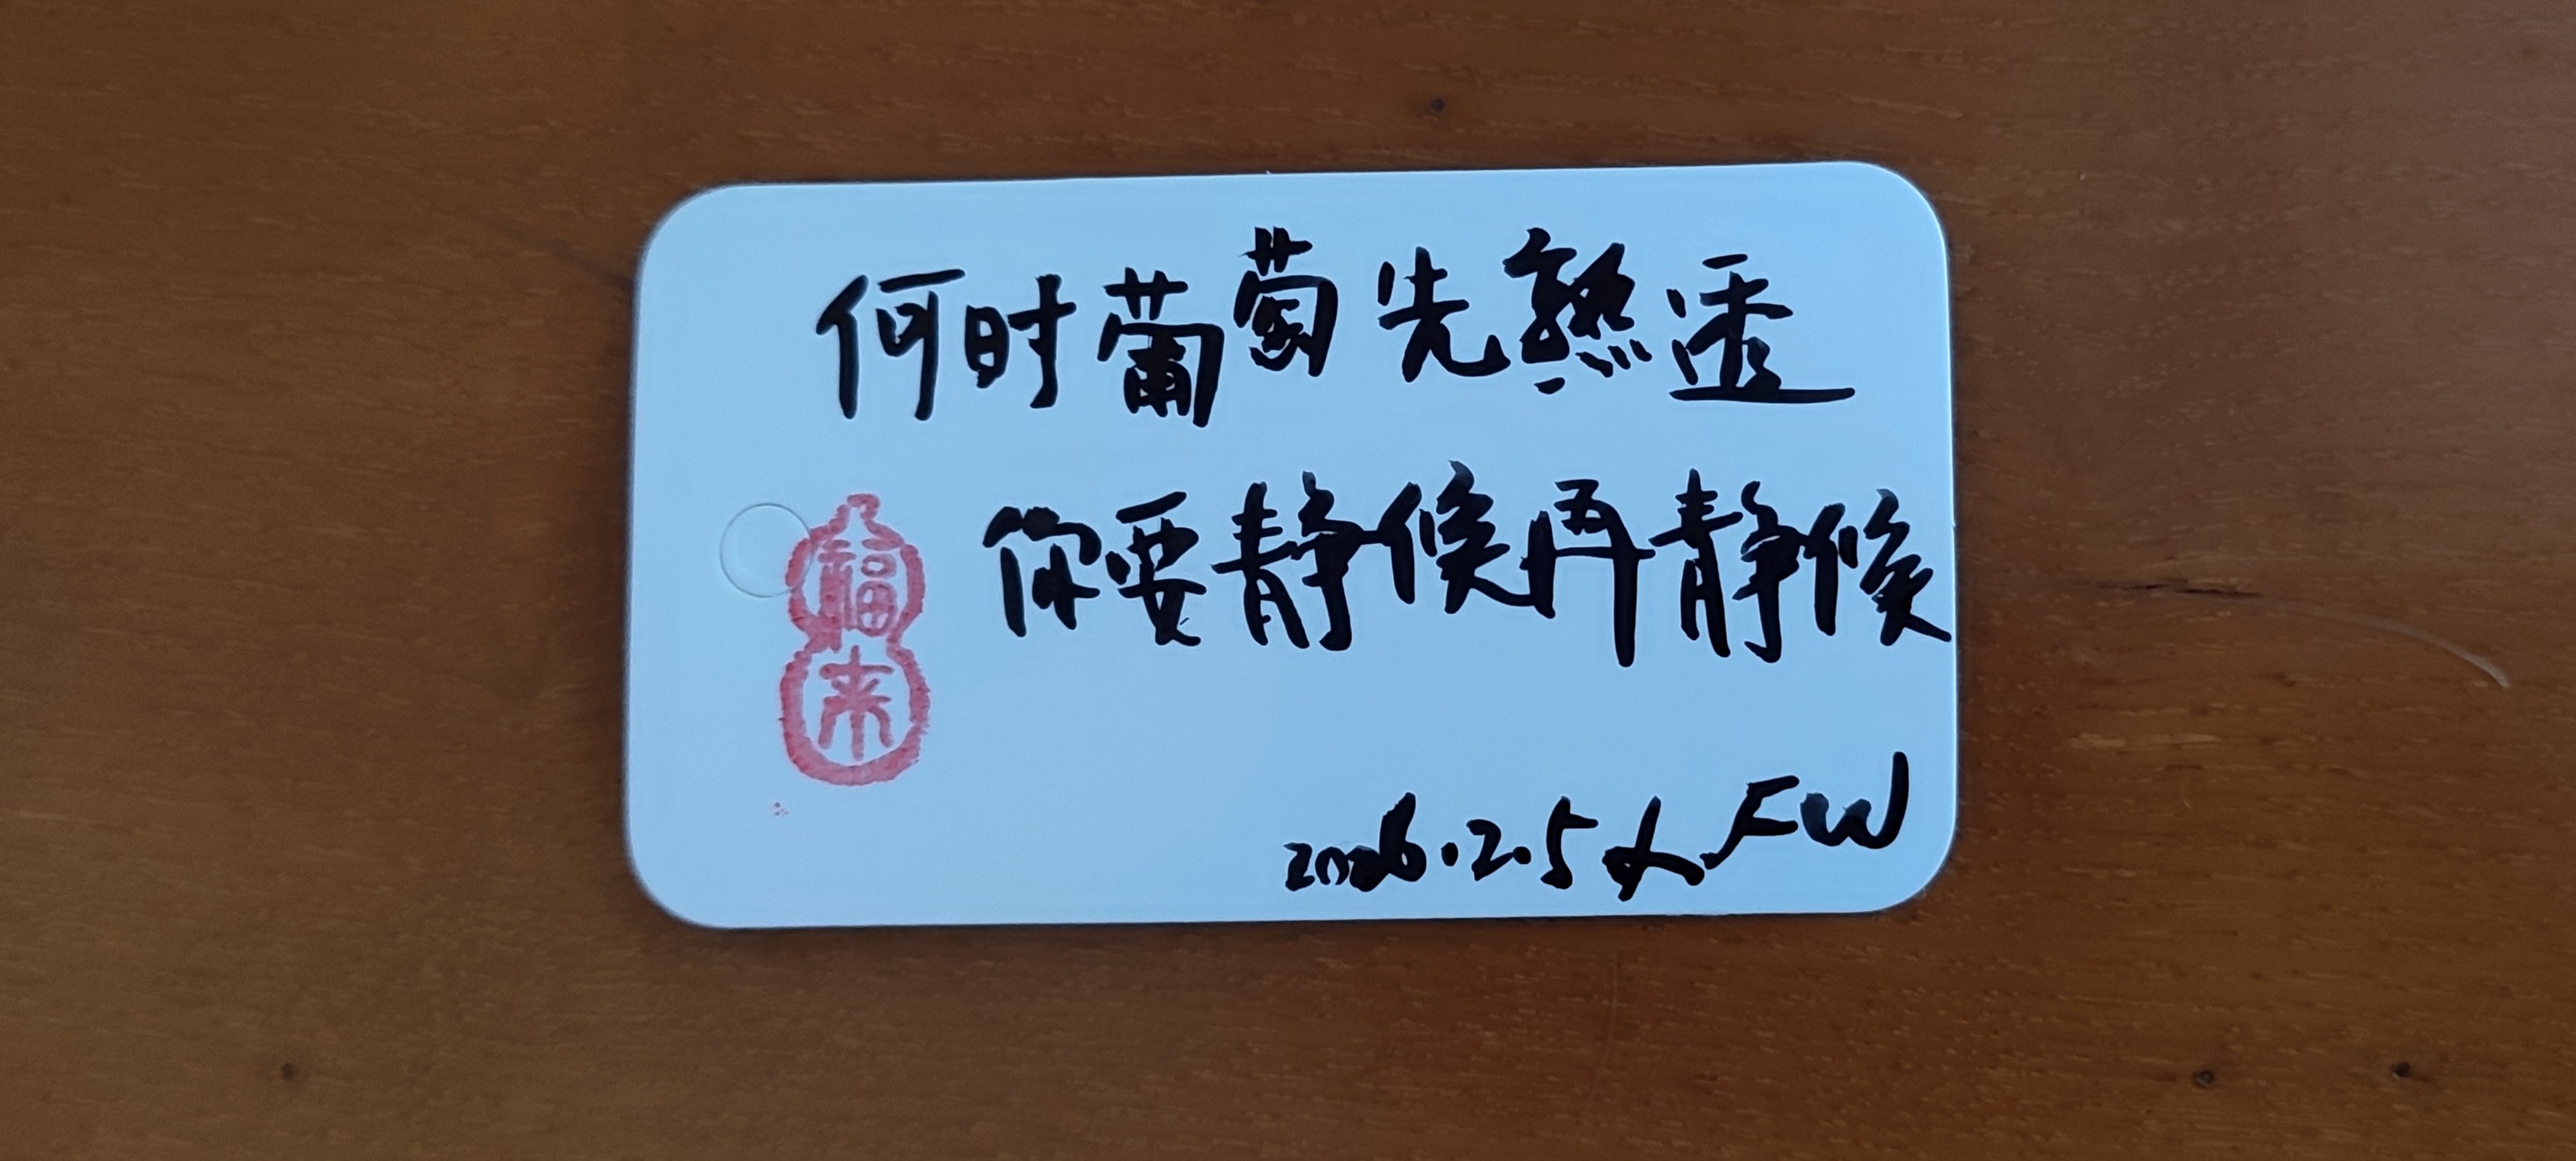 何时葡萄先熟透
你要静候再静候
福来
2026.2.5 FW